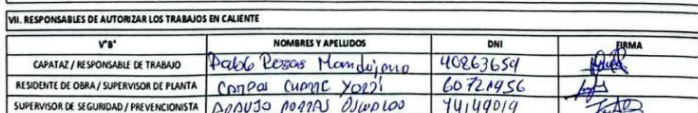 VII. RESPONSABLES DE AUTORIZAR LOS TRABAJOS EN CALIENTE
V°B° NOMBRES Y APELLIDOS DNI FIRMA
CAPATAZ / RESPONSABLE DE TRABAJO Pablo Rosas 40863659
RESIDENTE DE OBRA / SUPERVISOR DE PLANTA Campos Yordi
SUPERVISOR DE SEGURIDAD / PREVENCIONISTA ARAUJO 74149019